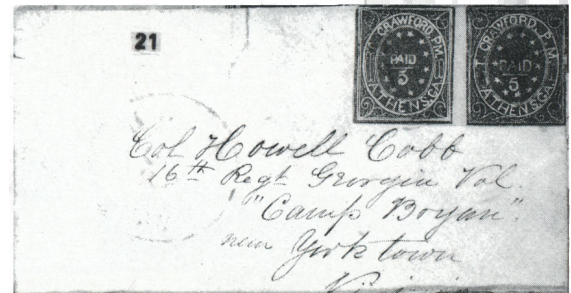 21
T. CRAWFORD, P.M.
PAID
5
ATHENS, GA.
T. CRAWFORD, P.M.
PAID
5
ATHENS, GA.
Col Howell Cobb
16th Regt Georgia Vol.
"Camp Bryan".
near Yorktown